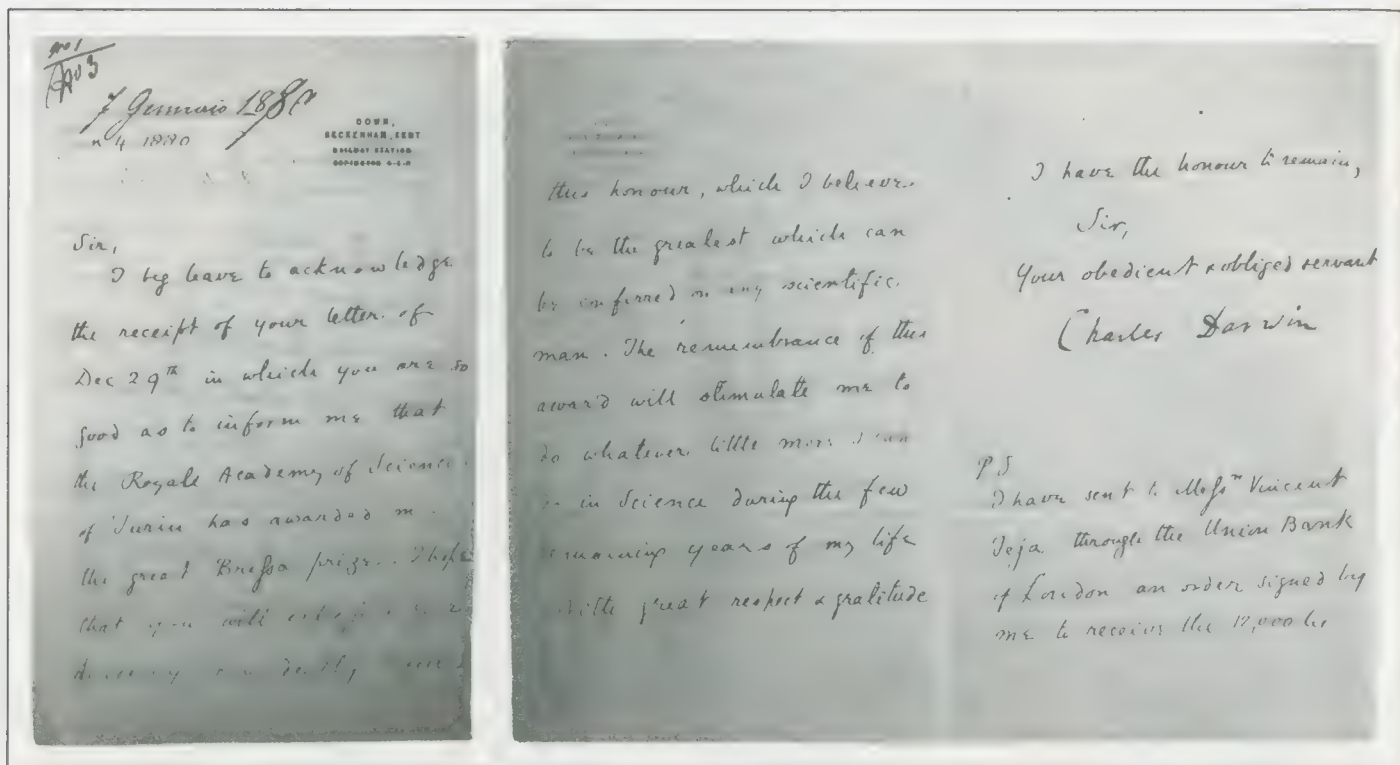 No 3
7 Gennaio 1880
n 4 1880
DOWN,
BECKENHAM, KENT
RAILWAY STATION
ORPINGTON S.E.R
Sir,
I beg leave to acknowledge
the receipt of your letter of
Dec 29th in which you are so
good as to inform me that
the Royale Academy of Science
of Turin has awarded me
the great Bressa prize. I hope
that you will
this honour, which I believe
to be the greatest which can
be conferred on any scientific
man. The remembrance of this
award will stimulate me to
do whatever little more I can
do in Science during the few
remaining years of my life
With great respect & gratitude
I have the honour to remain,
Sir,
Your obedient & obliged servant
Charles Darwin
PS
I have sent to Messrs Vincent
Teja through the Union Bank
of London an order signed by
me to receive the 12,000